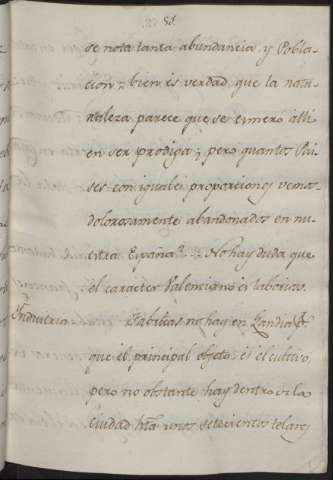 58.
se nota tanta abundancia y Pobla-
cion; bien es verdad que la natu-
raleza parece que se esmeró alli
en ser prodiga; pero quantos Pai-
ses con iguales proporciones vemos
dolorosamente abandonados en nu-
estra España? No hay duda que
el caracter Valenciano es laborioso.
Industria. Fabricas no hay en Gandia pr.
que el principal objeto es el cultivo
pero no obstante hay dentro de la
Ciudad hta. unos setecientos telares